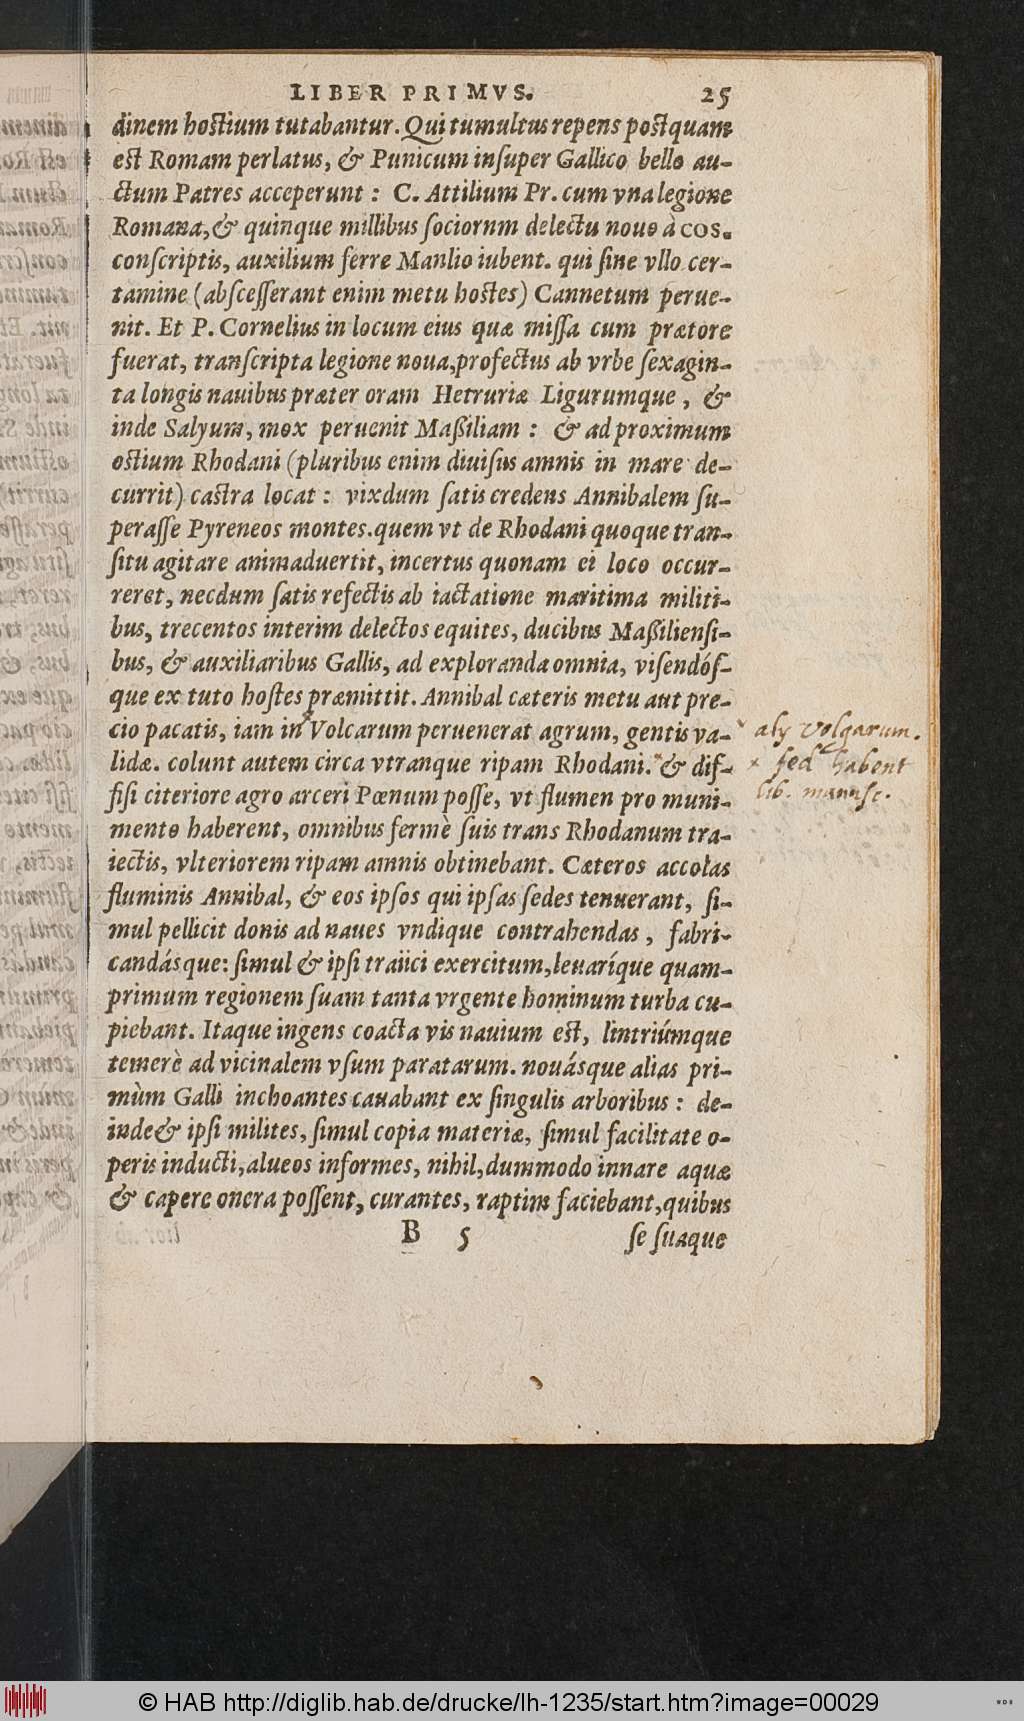 LIBER PRIMVS. 25
dinem hostium tutabantur. Qui tumultus repens postquam
est Romam perlatus, & Punicum insuper Gallico bello au-
ctum Patres acceperunt : C. Attilium Pr. cum vna legione
Romana, & quinque millibus sociorum delectu nouo à COS.
conscriptis, auxilium ferre Manlio iubent. qui sine vllo cer-
tamine (abscesserant enim metu hostes) Cannetum perue-
nit. Et P. Cornelius in locum eius quæ missa cum prætore
fuerat, transcripta legione noua, profectus ab vrbe sexagin-
ta longis nauibus præter oram Hetruriæ Ligurumque, &
inde Salyum, mox peruenit Maßiliam : & ad proximum
ostium Rhodani (pluribus enim diuisus amnis in mare de-
currit) castra locat : vixdum satis credens Annibalem su-
perasse Pyreneos montes. quem vt de Rhodani quoque tran-
situ agitare animaduertit, incertus quonam ei loco occur-
reret, necdum satis refectis ab iactatione maritima militi-
bus, trecentos interim delectos equites, ducibus Maßiliensi-
bus, & auxiliaribus Gallis, ad exploranda omnia, visendós-
que ex tuto hostes præmittit. Annibal cæteris metu aut pre-
cio pacatis, iam in Volcarum peruenerat agrum, gentis va-
lidæ. colunt autem circa vtranque ripam Rhodani. & dif-
fisi citeriore agro arceri Pœnum posse, vt flumen pro muni-
mento haberent, omnibus fermè suis trans Rhodanum tra-
iectis, vlteriorem ripam amnis obtinebant. Cæteros accolas
fluminis Annibal, & eos ipsos qui ipsas sedes tenuerant, si-
mul pellicit donis ad naues vndique contrahendas, fabri-
candásque: simul & ipsi traiici exercitum, leuaríque quam-
primum regionem suam tanta vrgente hominum turba cu-
piebant. Itaque ingens coacta vis nauium est, lintriúmque
temerè ad vicinalem vsum paratarum. nouásque alias pri-
mùm Galli inchoantes cauabant ex singulis arboribus : de-
inde & ipsi milites, simul copia materiæ, simul facilitate o-
peris inducti, alueos informes, nihil, dummodo innare aquæ
& capere onera possent, curantes, raptim faciebant, quibus
B 5 se suaque
alij Volgarum.
× sed habent
lib. manusc.
© HAB http://diglib.hab.de/drucke/lh-1235/start.htm?image=00029